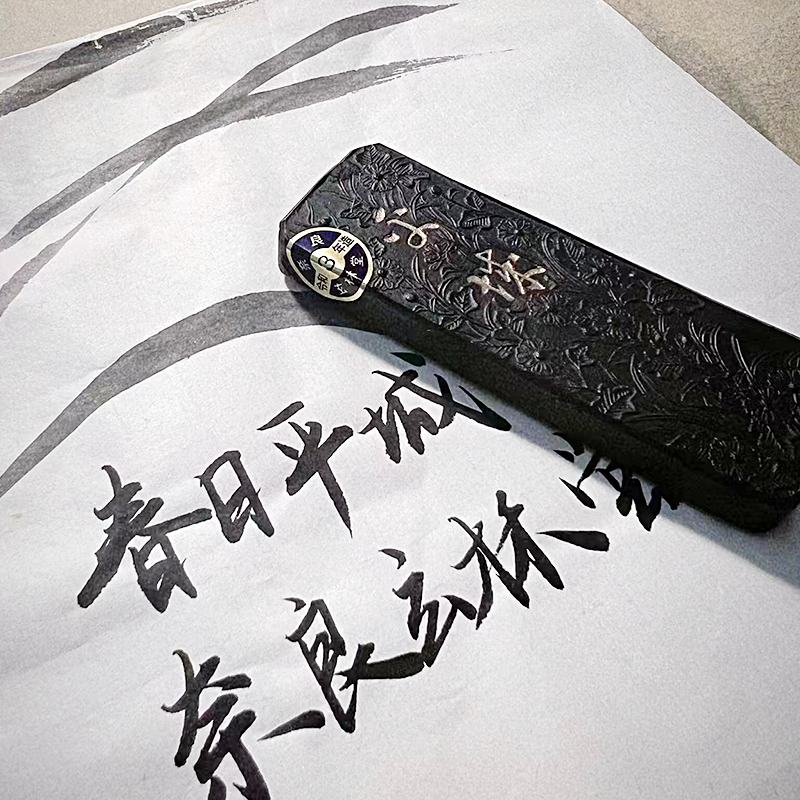 春日平城
奈良玄林堂